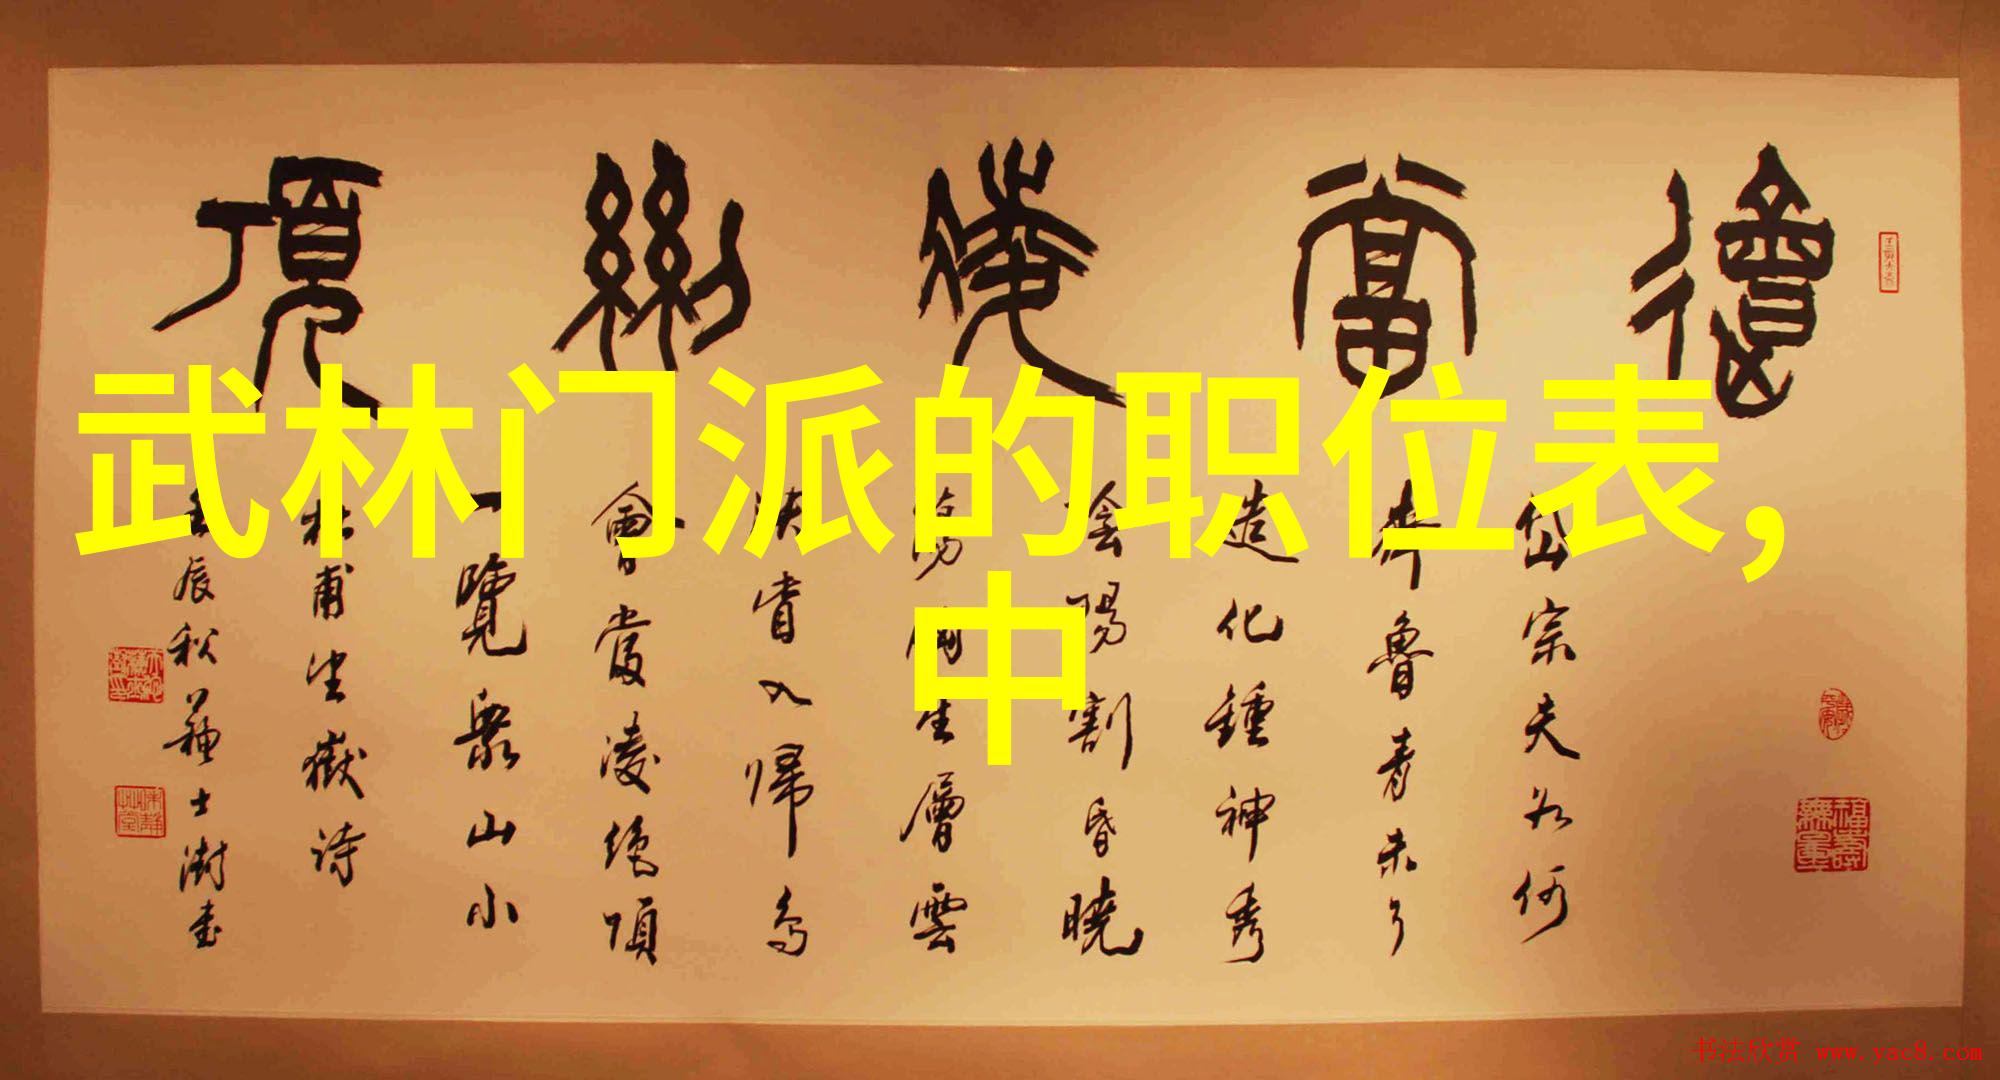 會當凌絕頂
岱宗夫如何
齊魯青未了
造化鍾神秀
陰陽割昏曉
蕩胸生層雲
決眥入歸鳥
會當凌絕頂
一覽眾山小
杜甫望嶽詩
壬辰秋蘇士澍書
武林门派的职位表,
中
书法欣赏 www.yac8.com